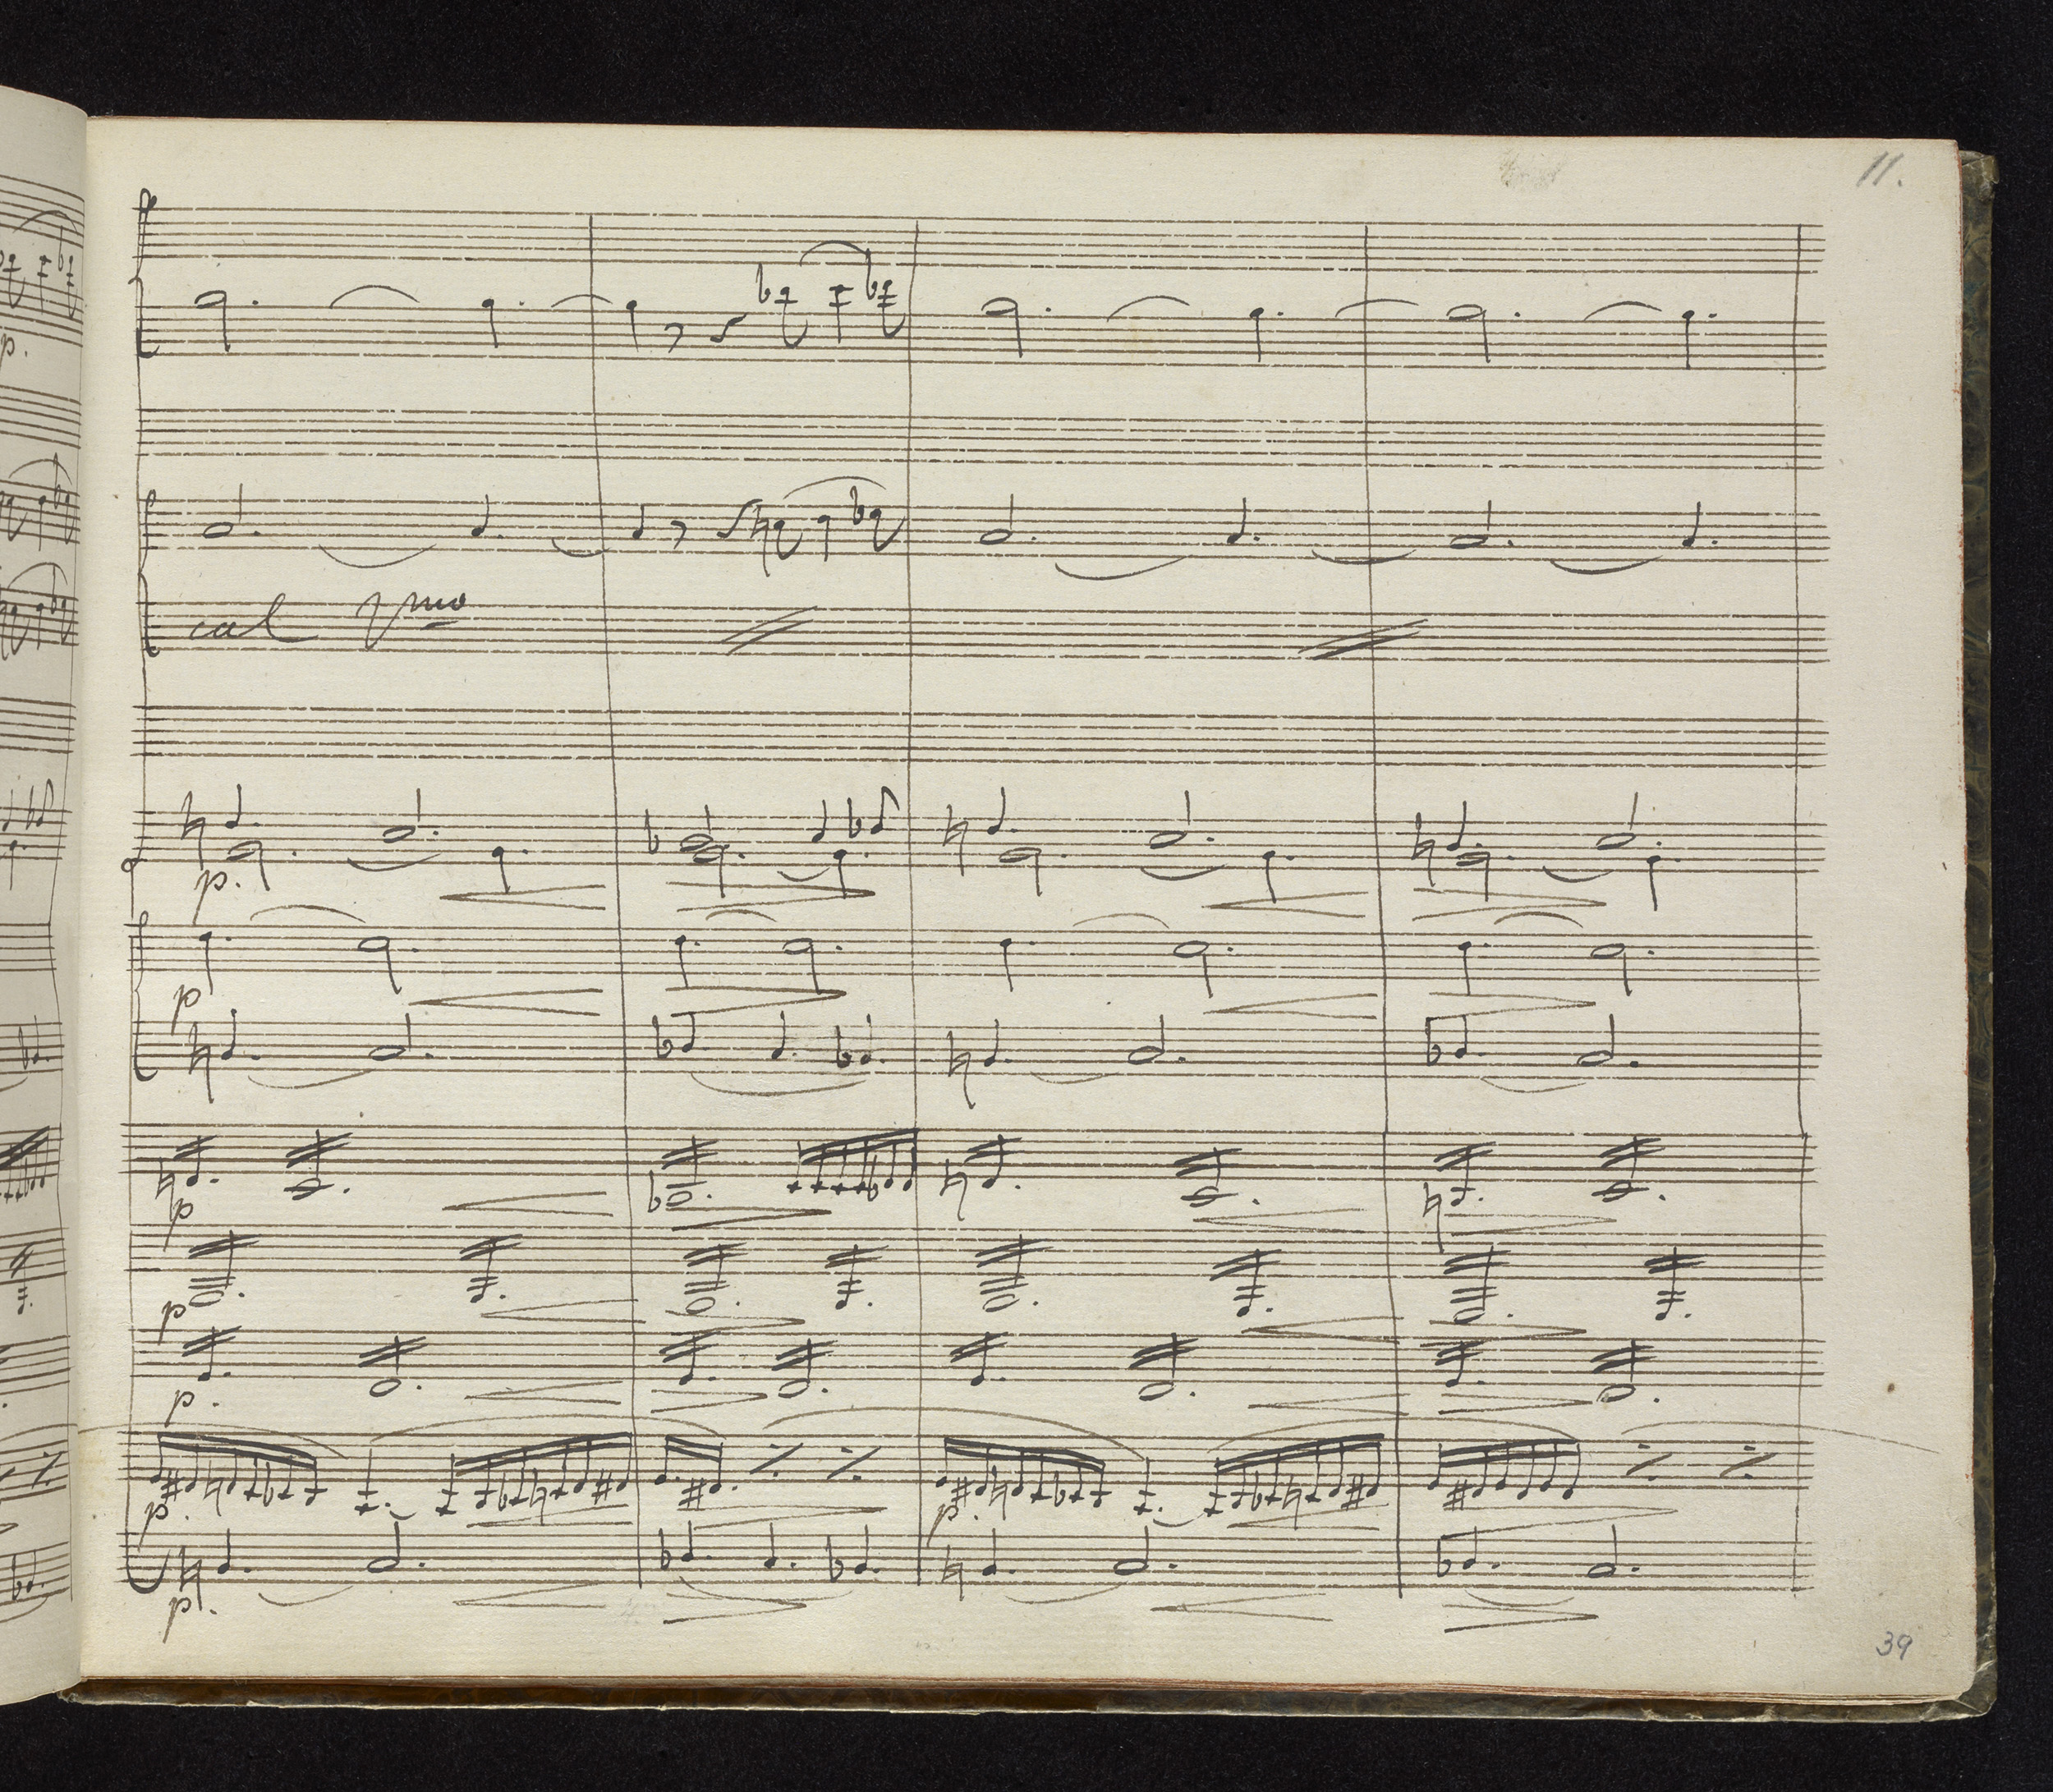 11.
col Vmo
p.
p
p
p
p.
p. p.
p.
39